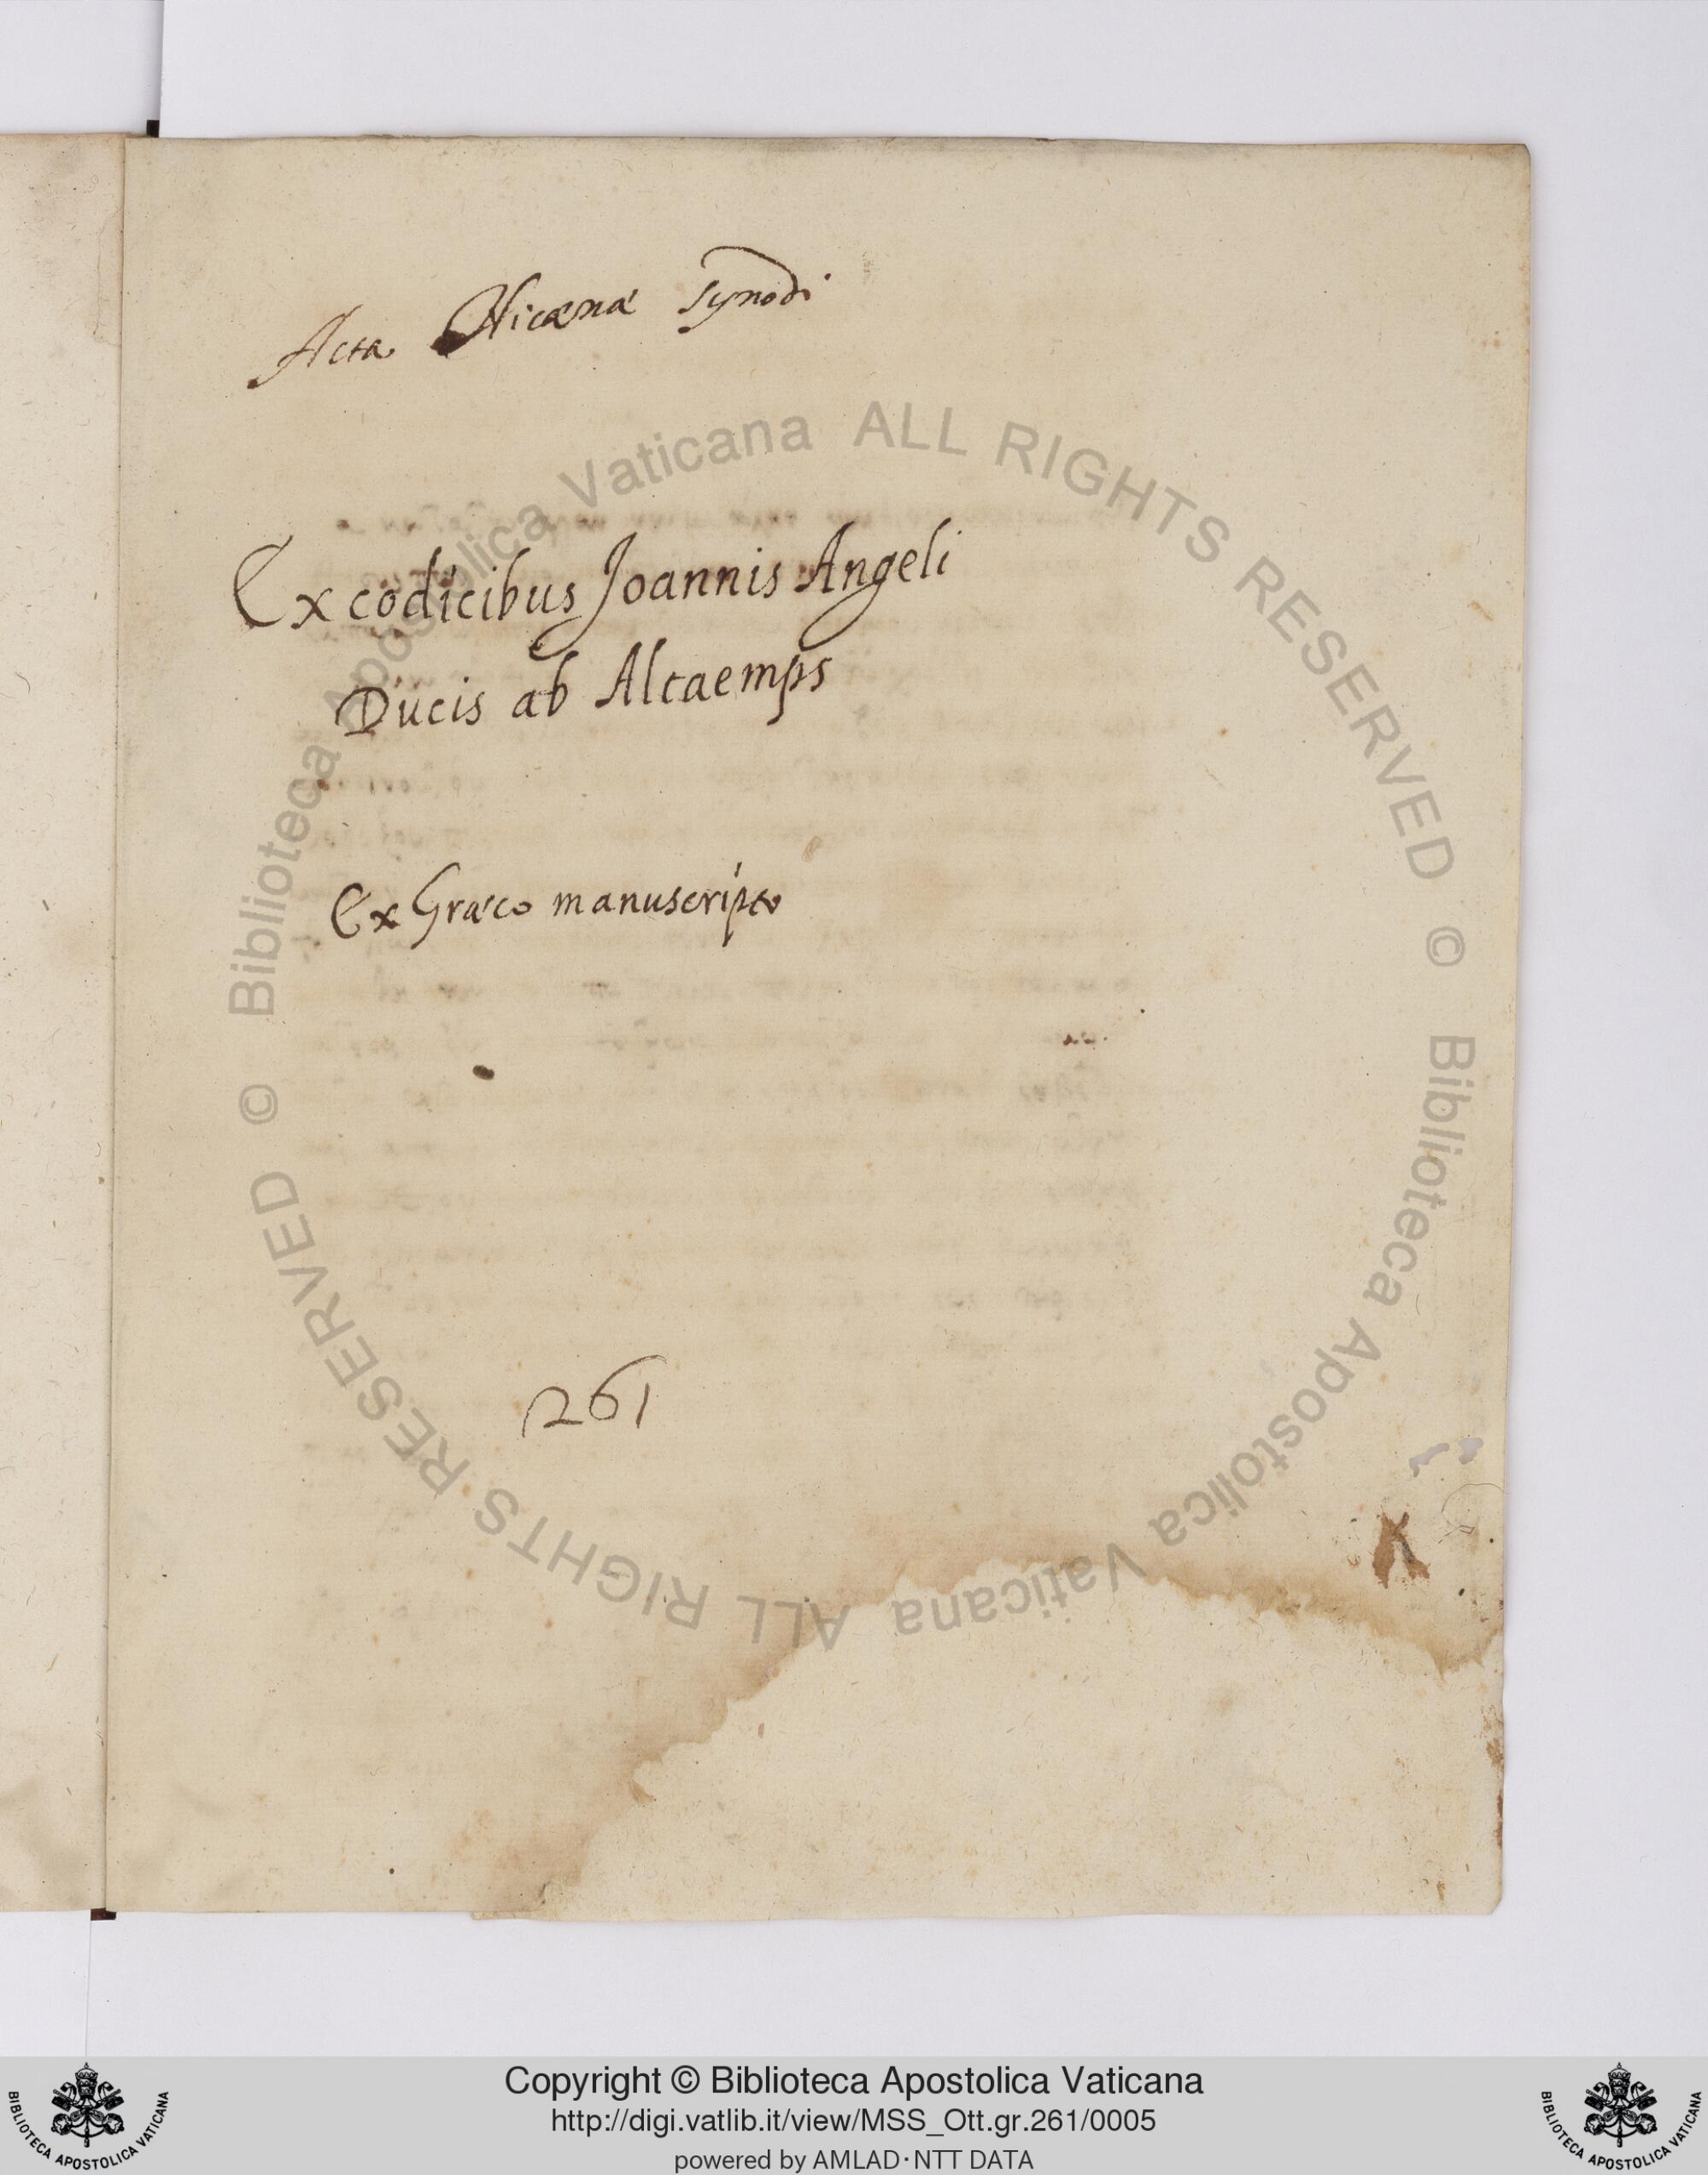 Acta Nicænæ Synodi
Ex codicibus Joannis Angeli
Ducis ab Altaemps
Ex Græco manuscripto
261
© Biblioteca Apostolica Vaticana ALL RIGHTS RESERVED
© Biblioteca Apostolica Vaticana ALL RIGHTS RESERVED
Copyright © Biblioteca Apostolica Vaticana
http://digi.vatlib.it/view/MSS_Ott.gr.261/0005
powered by AMLAD·NTT DATA
BIBLIOTECA APOSTOLICA VATICANA
BIBLIOTECA APOSTOLICA VATICANA